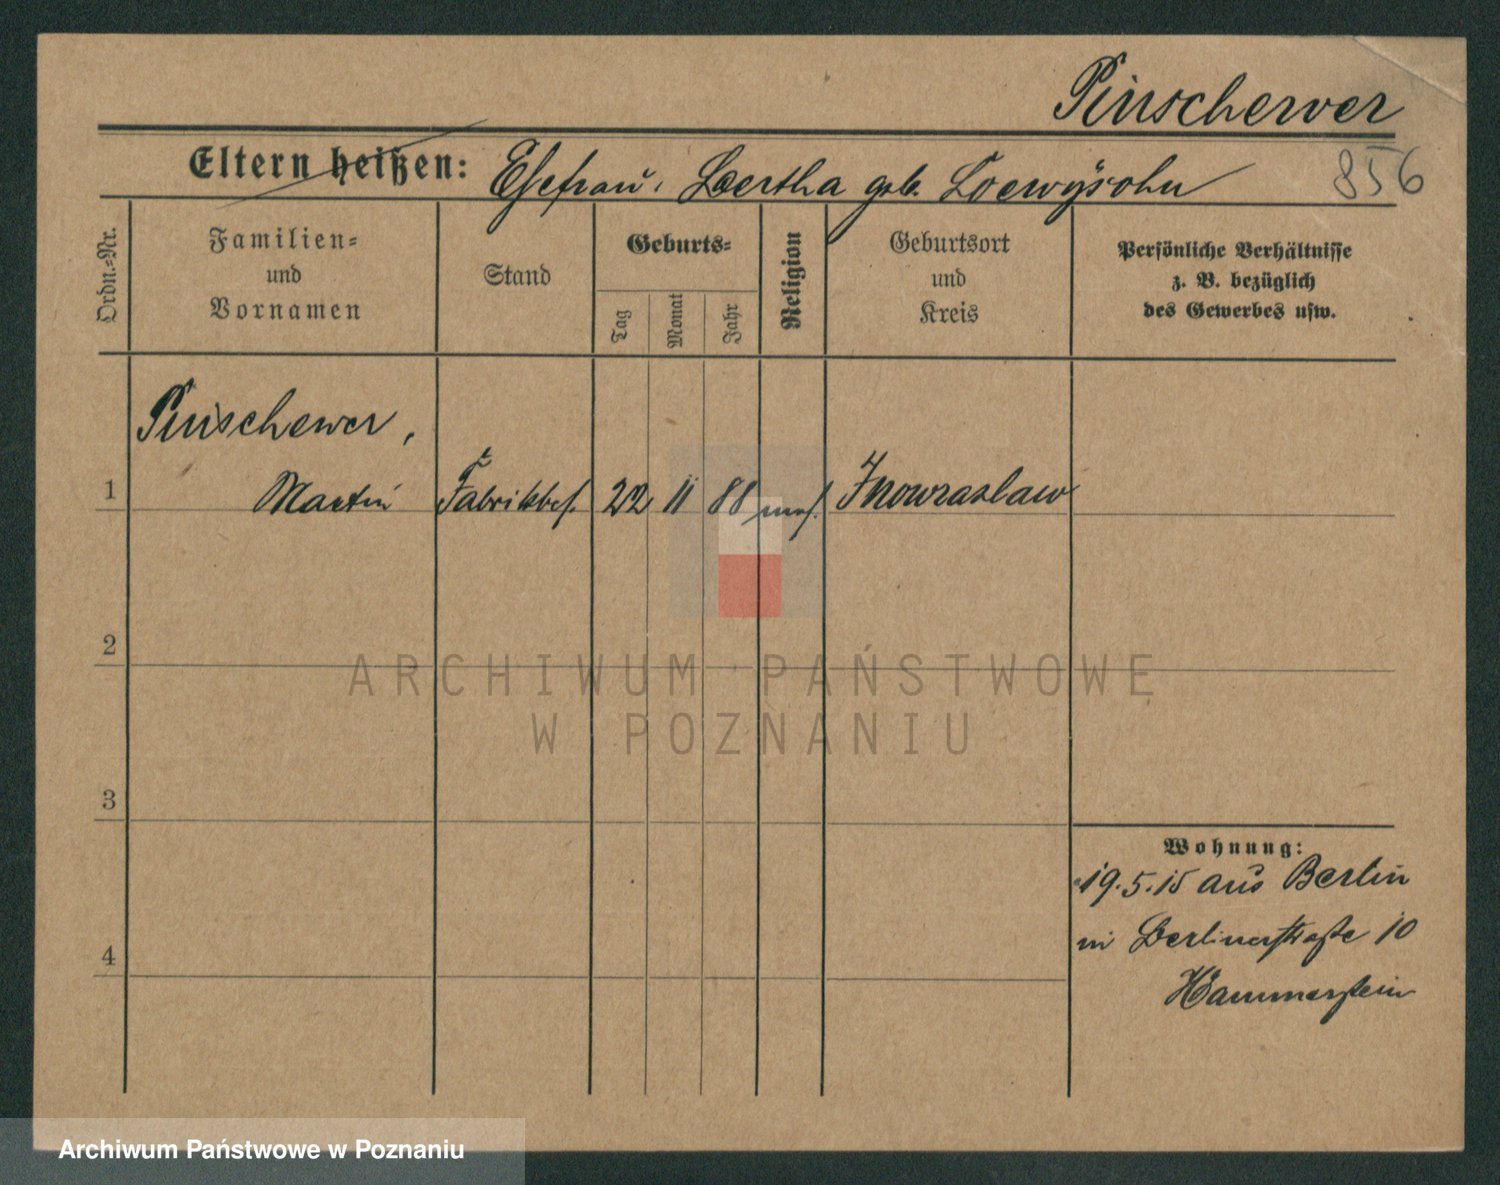 Pinschewer
Eltern heißen: Ehefrau: Bertha geb. Loewysohn
856
Ordn.-Nr.
Familien-
und
Vornamen
Stand
Geburts-
Tag
Monat
Jahr
Religion
Geburtsort
und
Kreis
Persönliche Verhältnisse
z. B. bezüglich
des Gewerbes usw.
Pinschewer,
1 Martin Fabrikbes. 22 11 88 mos. Inowrazlaw
2
ARCHIWUM PAŃSTWOWE
W POZNANIU
3
Wohnung:
19.5.15 aus Berlin
in Berlinerstraße 10
4
Hammerstein
Archiwum Państwowe w Poznaniu